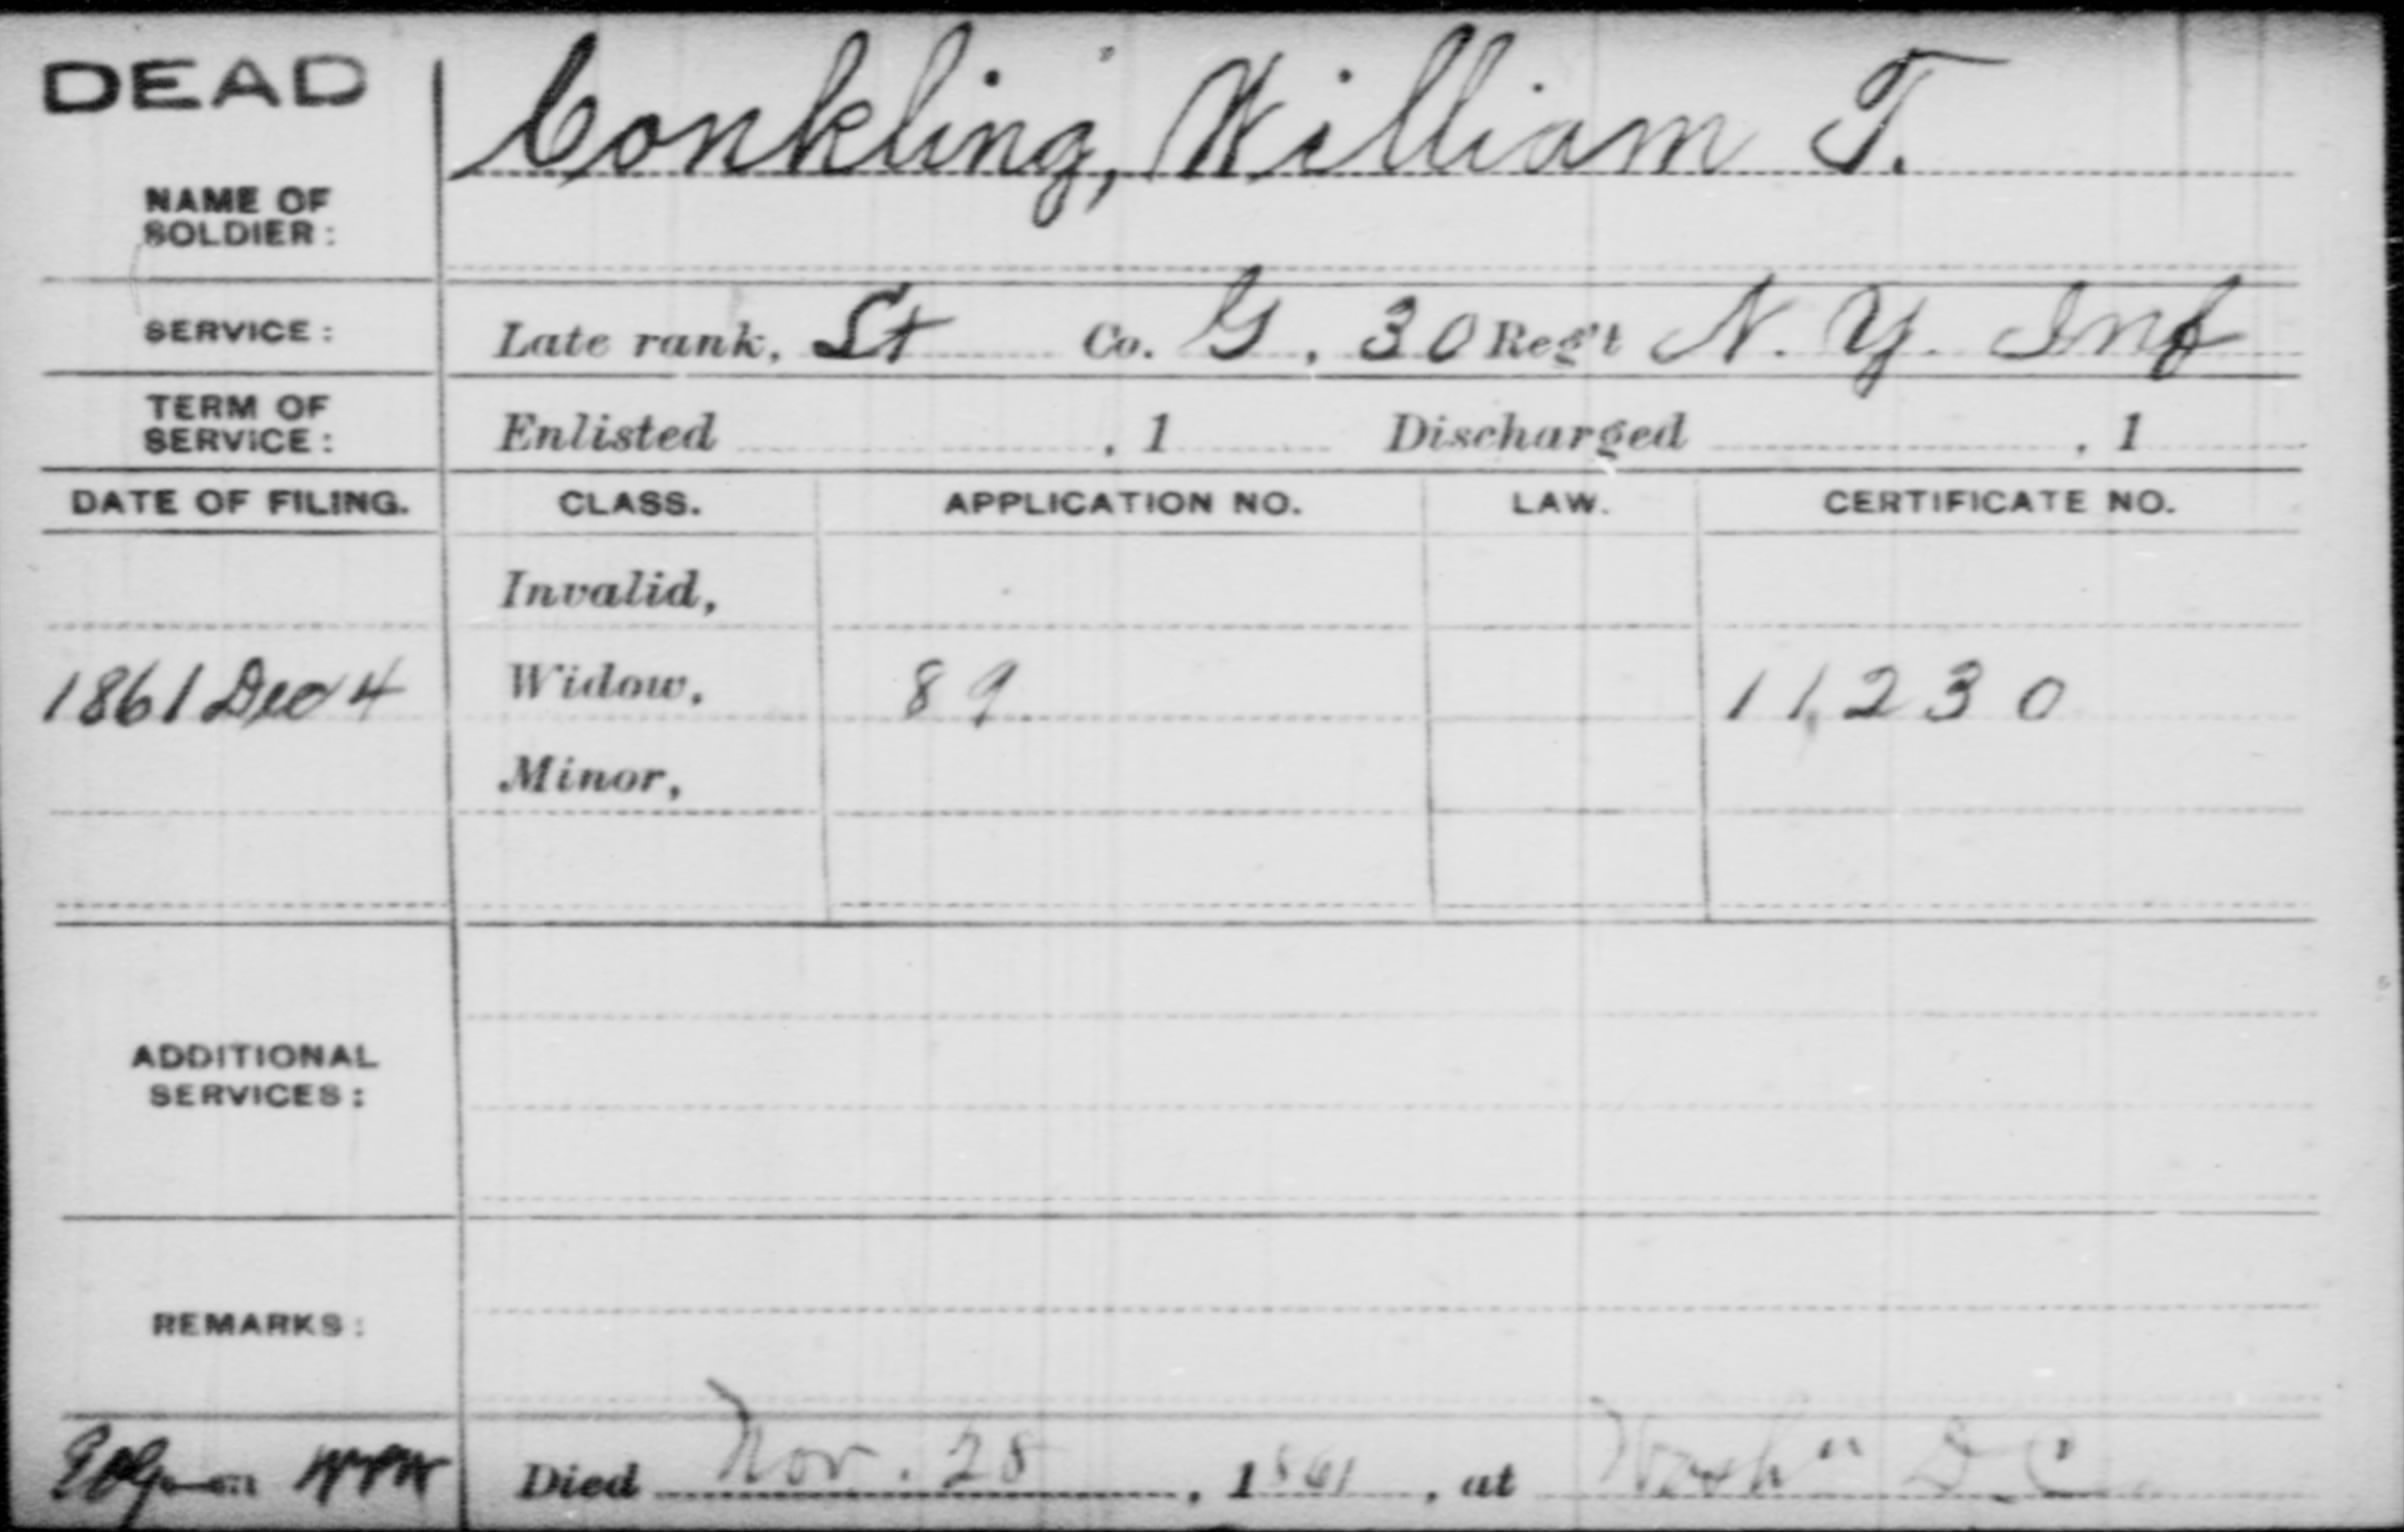 DEAD
Conkling, William T.
NAME OF
SOLDIER:
SERVICE: Late rank, Lt Co. G, 30 Reg't N. Y. Inf
TERM OF
SERVICE: Enlisted , 1 Discharged , 1
DATE OF FILING. CLASS. APPLICATION NO. LAW. CERTIFICATE NO.
Invalid,
1861 Dec 4 Widow, 89 11,230
Minor,
ADDITIONAL
SERVICES:
REMARKS:
Died Nov. 28, 1861, at Washn D C